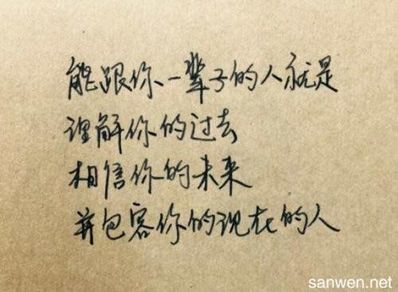 能跟你一辈子的人就是
理解你的过去
相信你的未来
并包容你的现在的人
sanwen.net